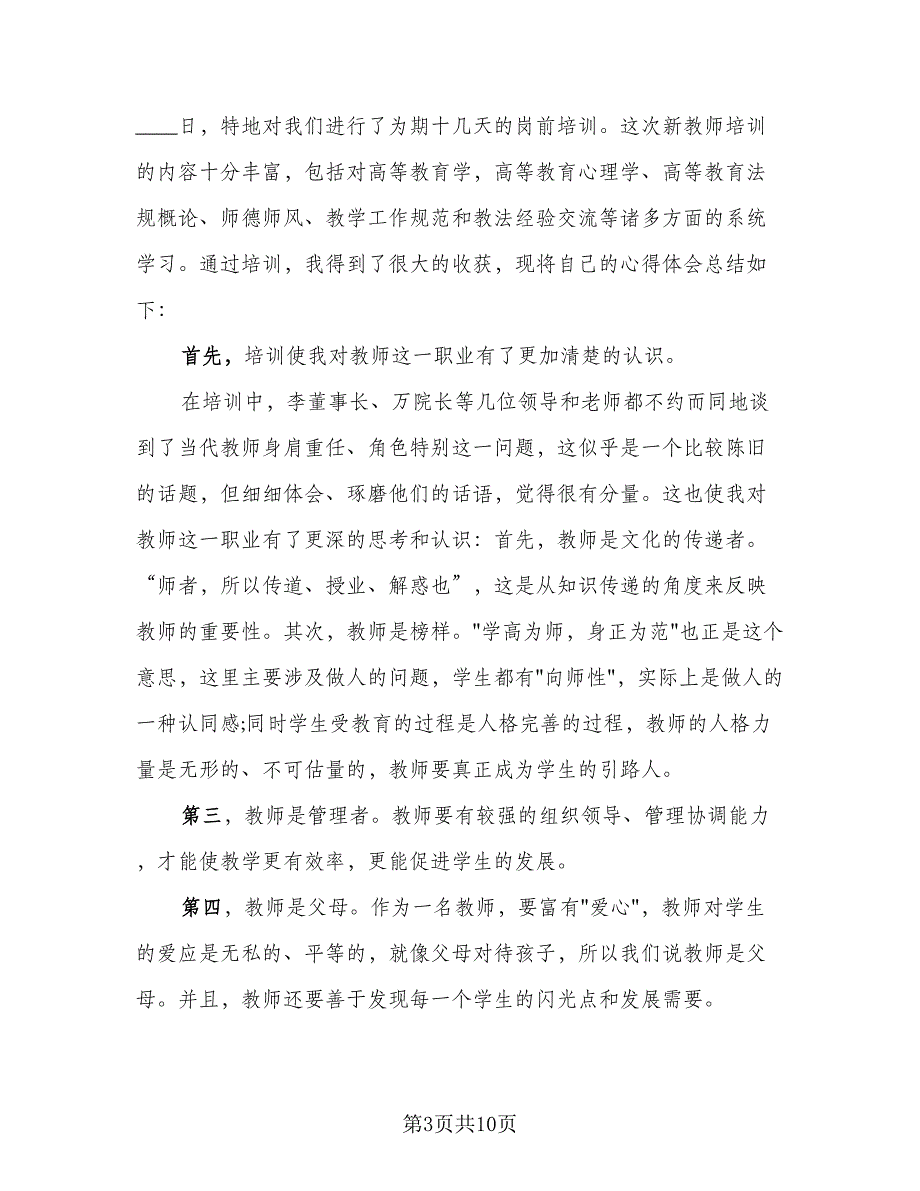 ____日，特地对我们进行了为期十几天的岗前培训。这次新教师培训
的内容十分丰富，包括对高等教育学，高等教育心理学、高等教育法
规概论、师德师风、教学工作规范和教法经验交流等诸多方面的系统
学习。通过培训，我得到了很大的收获，现将自己的心得体会总结如
下：
首先，培训使我对教师这一职业有了更加清楚的认识。
在培训中，李董事长、万院长等几位领导和老师都不约而同地谈
到了当代教师身肩重任、角色特别这一问题，这似乎是一个比较陈旧
的话题，但细细体会、琢磨他们的话语，觉得很有分量。这也使我对
教师这一职业有了更深的思考和认识：首先，教师是文化的传递者。
“师者，所以传道、授业、解惑也”，这是从知识传递的角度来反映
教师的重要性。其次，教师是榜样。"学高为师，身正为范"也正是这个
意思，这里主要涉及做人的问题，学生都有"向师性"，实际上是做人的
一种认同感;同时学生受教育的过程是人格完善的过程，教师的人格力
量是无形的、不可估量的，教师要真正成为学生的引路人。
第三，教师是管理者。教师要有较强的组织领导、管理协调能力
，才能使教学更有效率，更能促进学生的发展。
第四，教师是父母。作为一名教师，要富有"爱心"，教师对学生
的爱应是无私的、平等的，就像父母对待孩子，所以我们说教师是父
母。并且，教师还要善于发现每一个学生的闪光点和发展需要。
第3页共10页